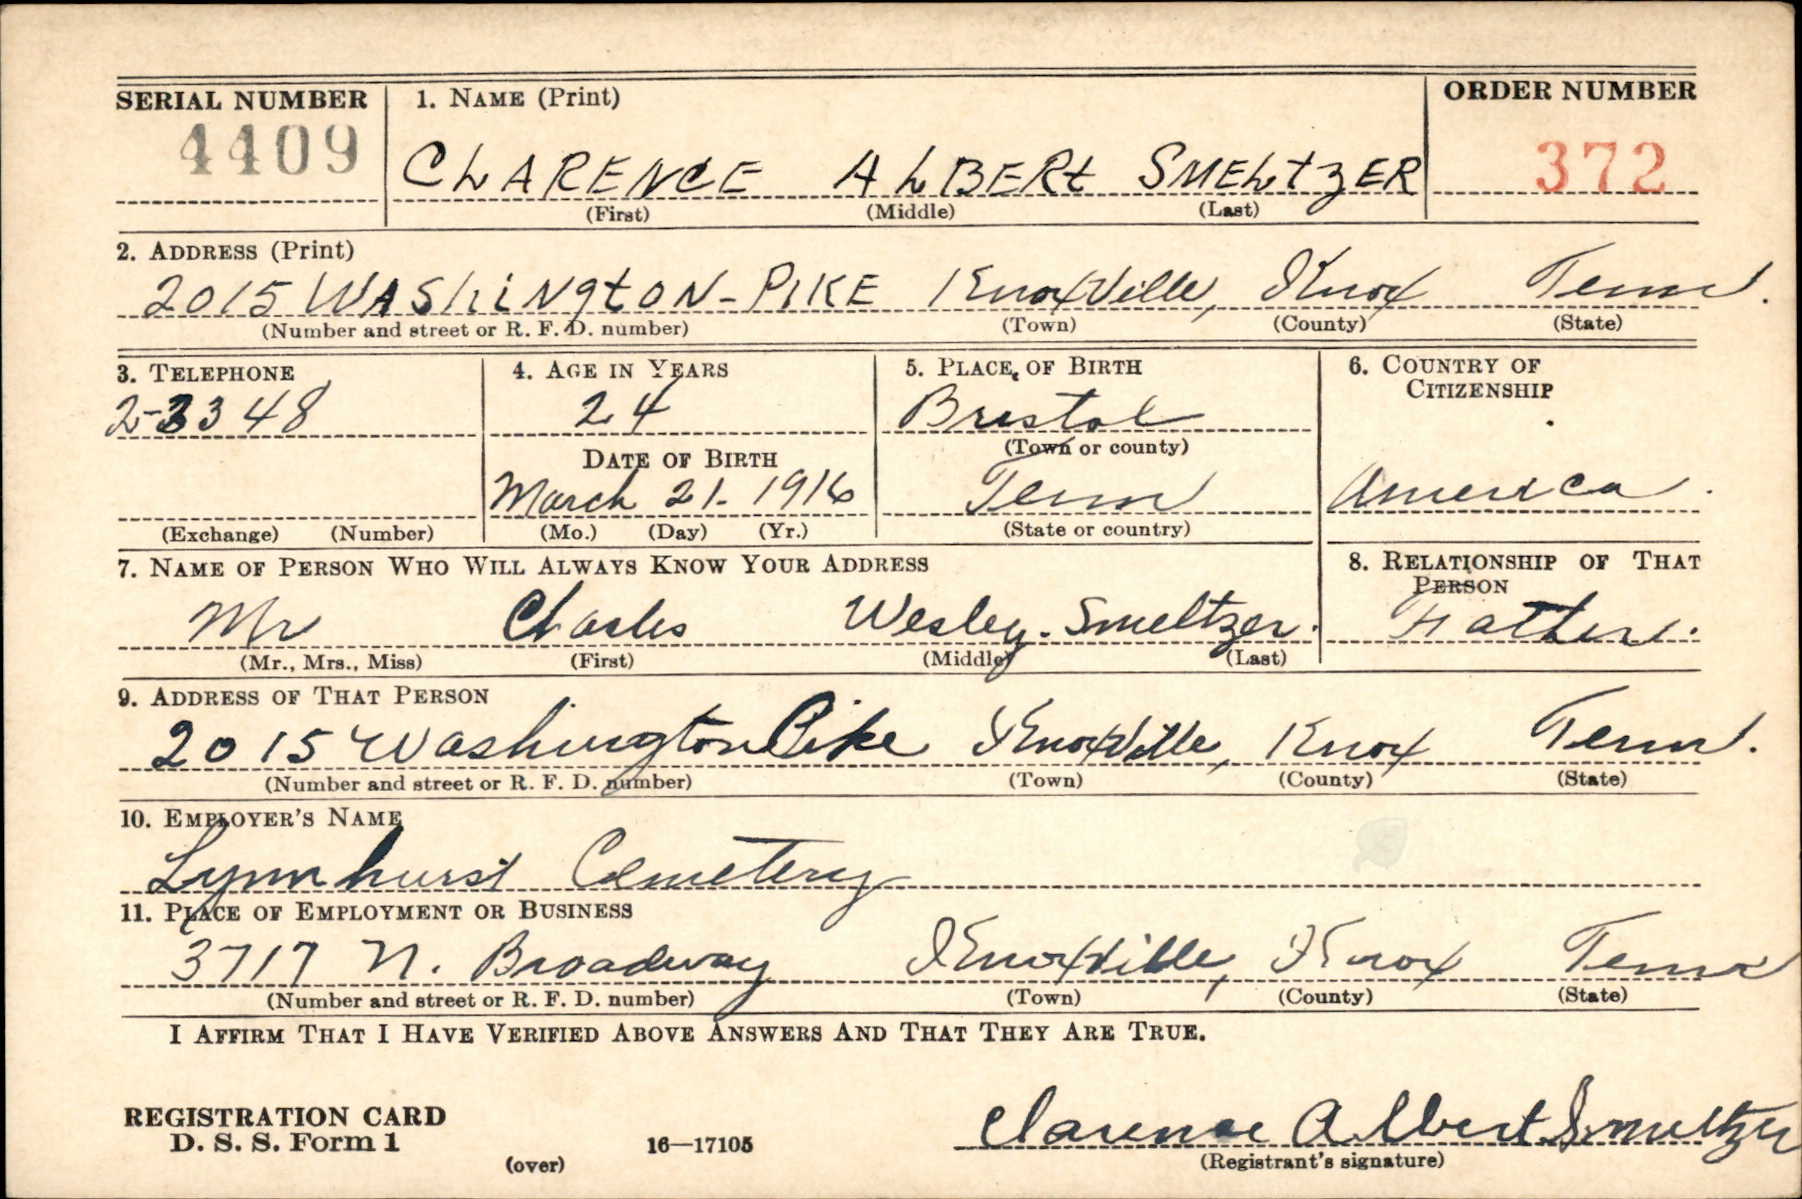 SERIAL NUMBER 1. NAME (Print) ORDER NUMBER
4409 CLARENCE ALBERt SMELtzER 372
(First) (Middle) (Last)
2. ADDRESS (Print)
2015 WAShiNgtON-PIKE Knoxville, Knox Tenn.
(Number and street or R. F. D. number) (Town) (County) (State)
3. TELEPHONE 4. AGE IN YEARS 5. PLACE OF BIRTH 6. COUNTRY OF CITIZENSHIP
2-3348 24 Bristol
DATE OF BIRTH (Town or county)
March 21. 1916 Tenn America.
(Exchange) (Number) (Mo.) (Day) (Yr.) (State or country)
7. NAME OF PERSON WHO WILL ALWAYS KNOW YOUR ADDRESS 8. RELATIONSHIP OF THAT PERSON
Mr Charles Wesley. Smeltzer. Father.
(Mr., Mrs., Miss) (First) (Middle) (Last)
9. ADDRESS OF THAT PERSON
2015 Washington Pike Knoxville, Knox Tenn.
(Number and street or R. F. D. number) (Town) (County) (State)
10. EMPLOYER'S NAME
Lynnhurst Cemetery
11. PLACE OF EMPLOYMENT OR BUSINESS
3717 N. Broadway Knoxville, Knox Tenn
(Number and street or R. F. D. number) (Town) (County) (State)
I AFFIRM THAT I HAVE VERIFIED ABOVE ANSWERS AND THAT THEY ARE TRUE.
REGISTRATION CARD
D. S. S. Form 1 16—17105 Clarence Albert Smeltzer
(over) (Registrant's signature)